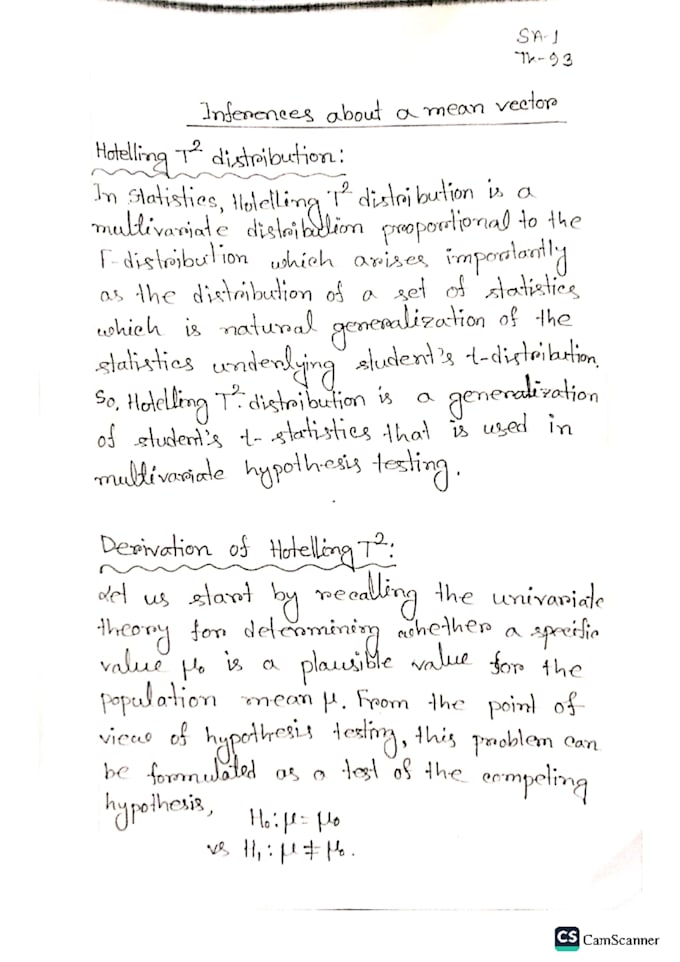 SA-1
Th-93
Inferences about a mean vector
Hotelling T² distribution:
In Statistics, Hotelling T² distribution is a
multivariate distribution proportional to the
F-distribution which arises importantly
as the distribution of a set of statistics
which is natural generalization of the
statistics underlying student's t-distribution.
So, Hotelling T² distribution is a generalization
of student's t-statistics that is used in
multivariate hypothesis testing.
Derivation of Hotelling T²:
Let us start by recalling the univariate
theory for determining whether a specific
value μ₀ is a plausible value for the
population mean μ. From the point of
view of hypothesis testing, this problem can
be formulated as a test of the competing
hypothesis,
H₀: μ = μ₀
vs H₁: μ ≠ μ₀.
CS CamScanner